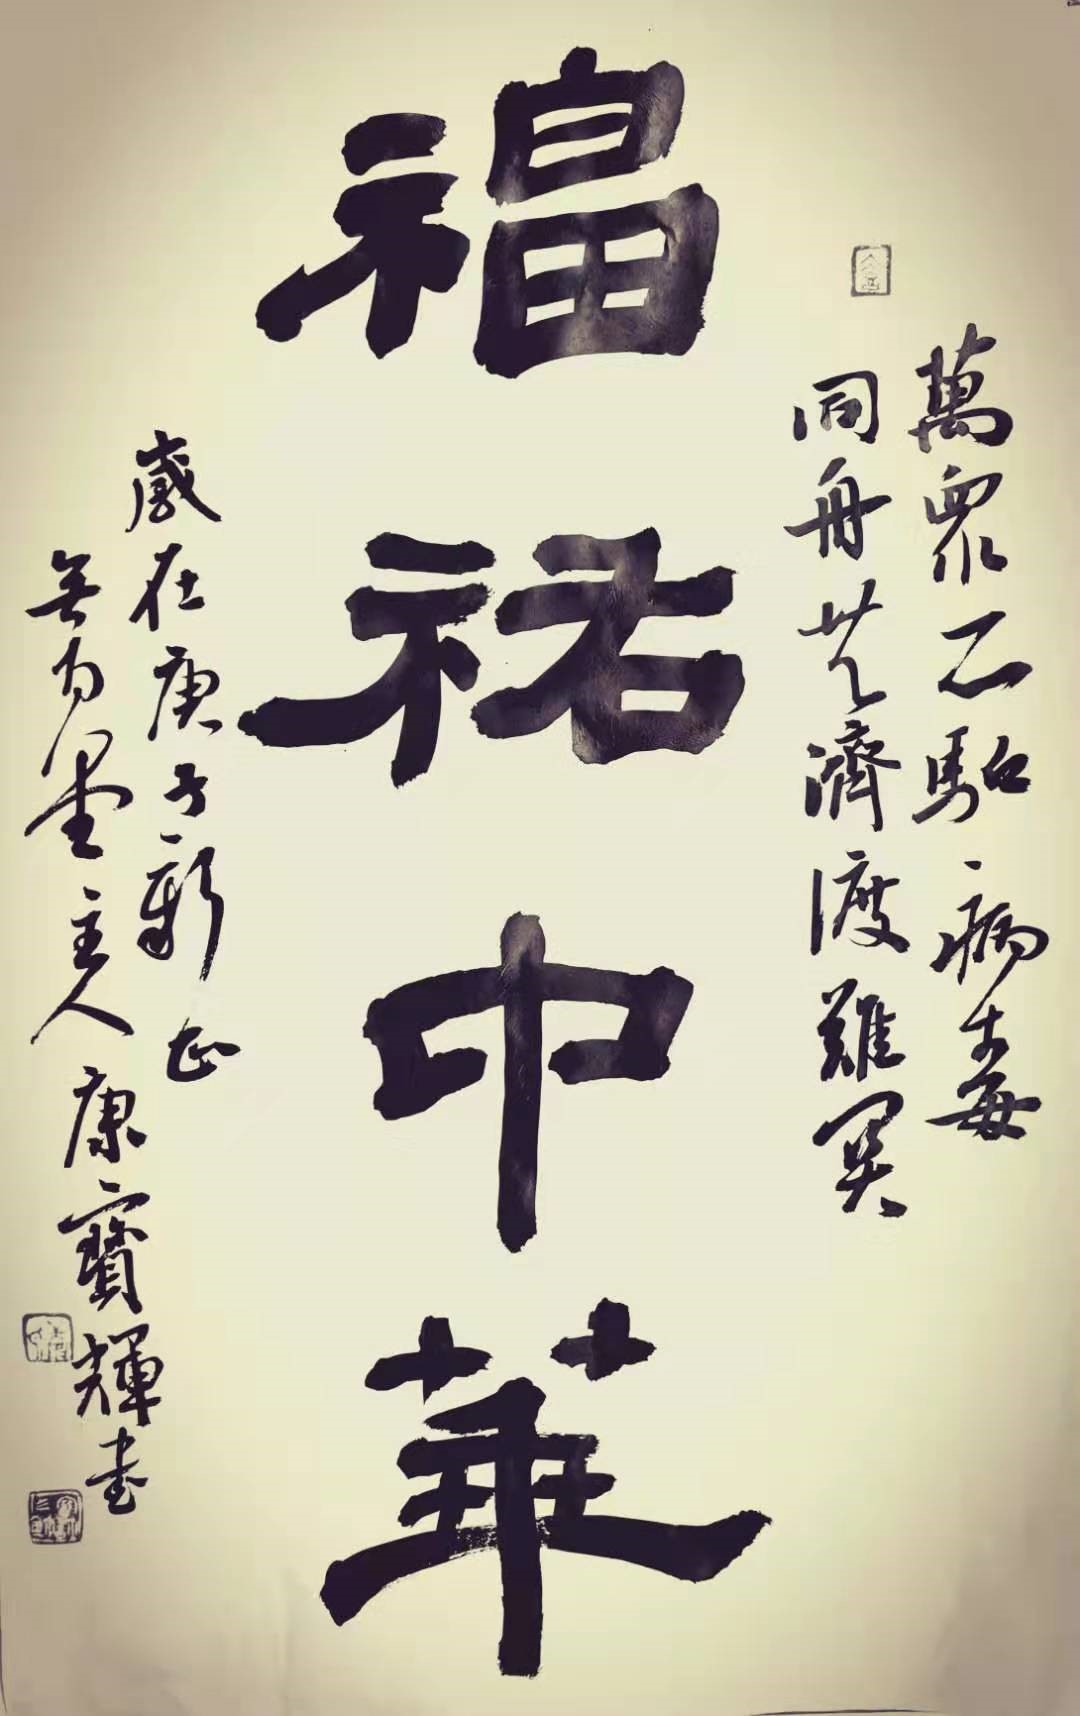 萬眾一心驅病毒
同舟共濟渡難關
福祐中華
歲在庚子新正
無为主人康寶輝書